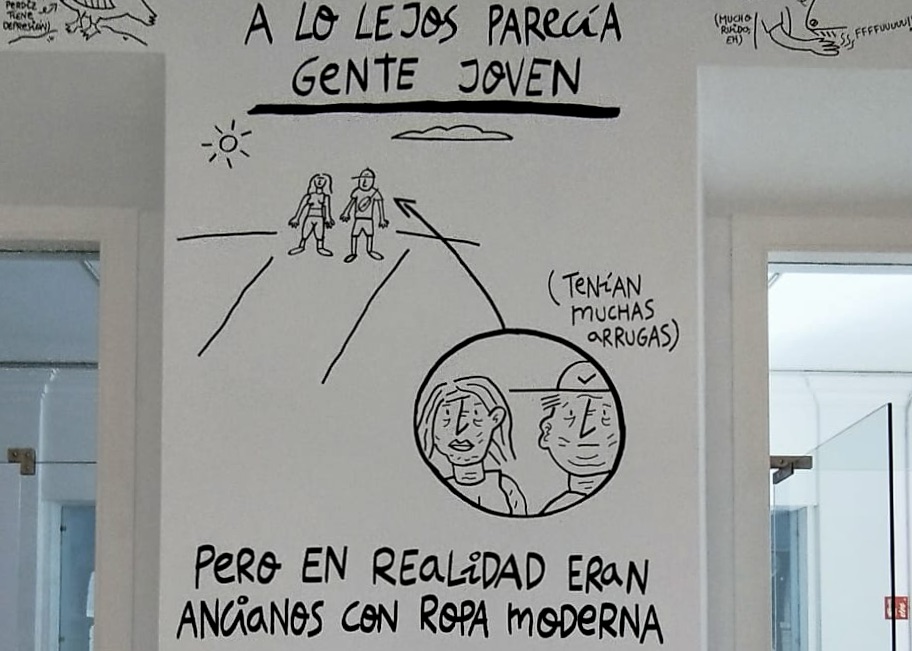 PERDIZ
TIENE
DEPRESIÓN)
A LO LEJOS PARECÍA
GENTE JOVEN
(MUCHO
RUIDO,
EH)
FFFFUUUUU
(TENÍAN
MUCHAS
ARRUGAS)
PERO EN REALIDAD ERAN
ANCIANOS CON ROPA MODERNA